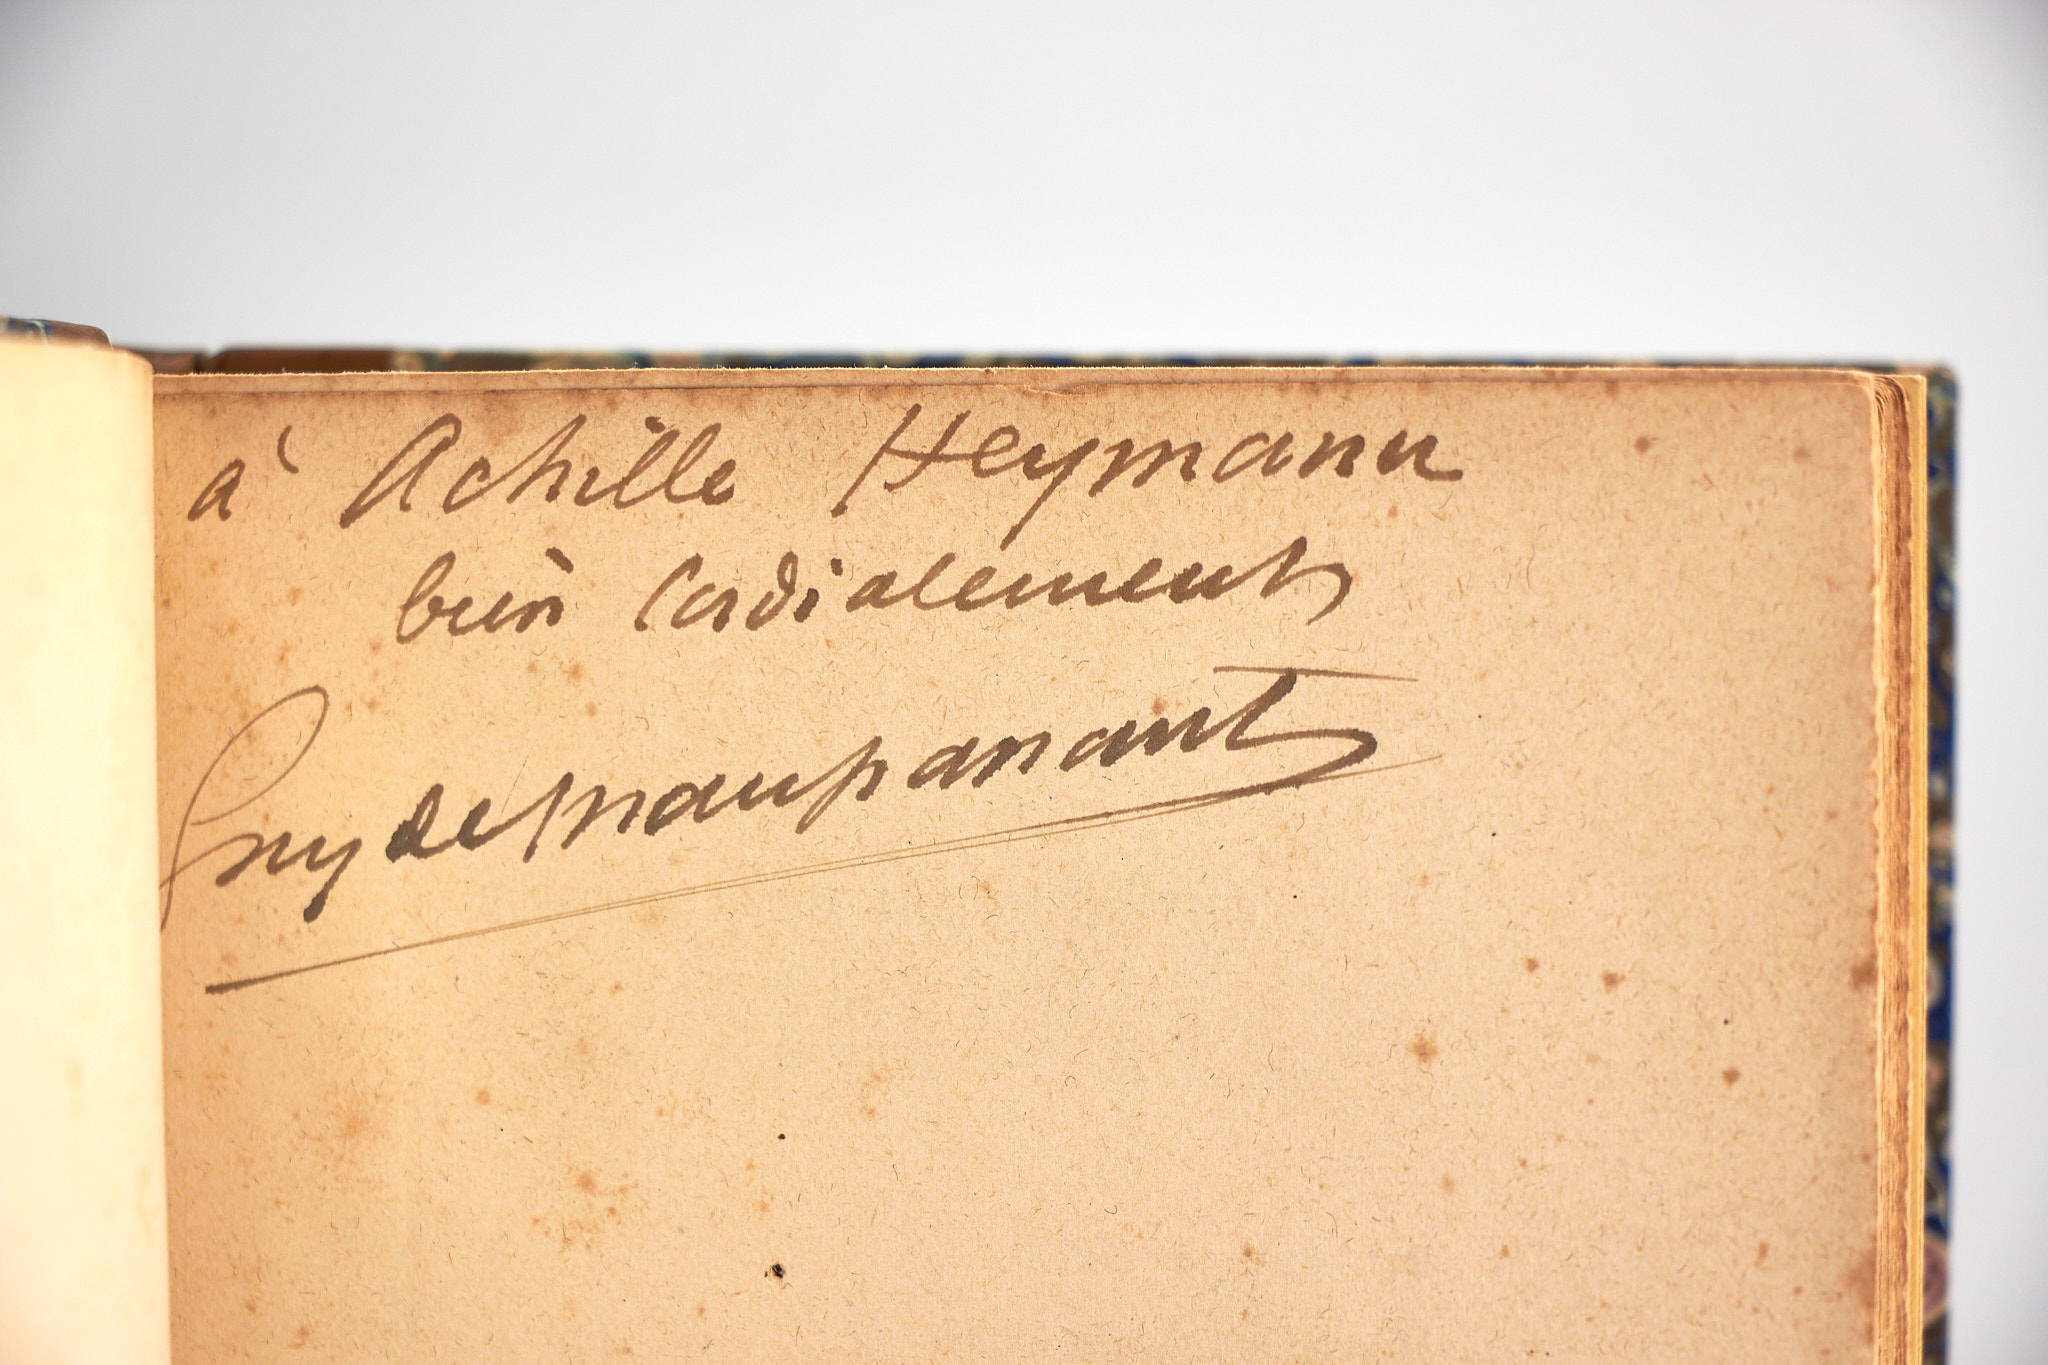 à Achille Heymann
bien cordialement
Guy de Maupassant